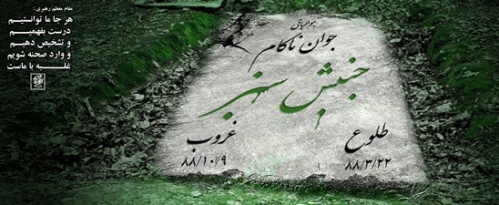 مقام معظم رهبری:
هر جا ما توانستیم
درست بفهمیم
و تشخیص دهیم
و وارد صحنه شویم
غلبه با ماست
جوان ناکام
جنبش سبز
طلوع
۸۸/۳/۲۲
غروب
۸۸/۱۰/۹